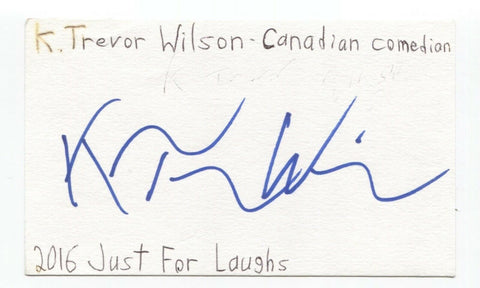 K. Trevor Wilson - Canadian comedian
K Trevor Wilson
2016 Just For Laughs